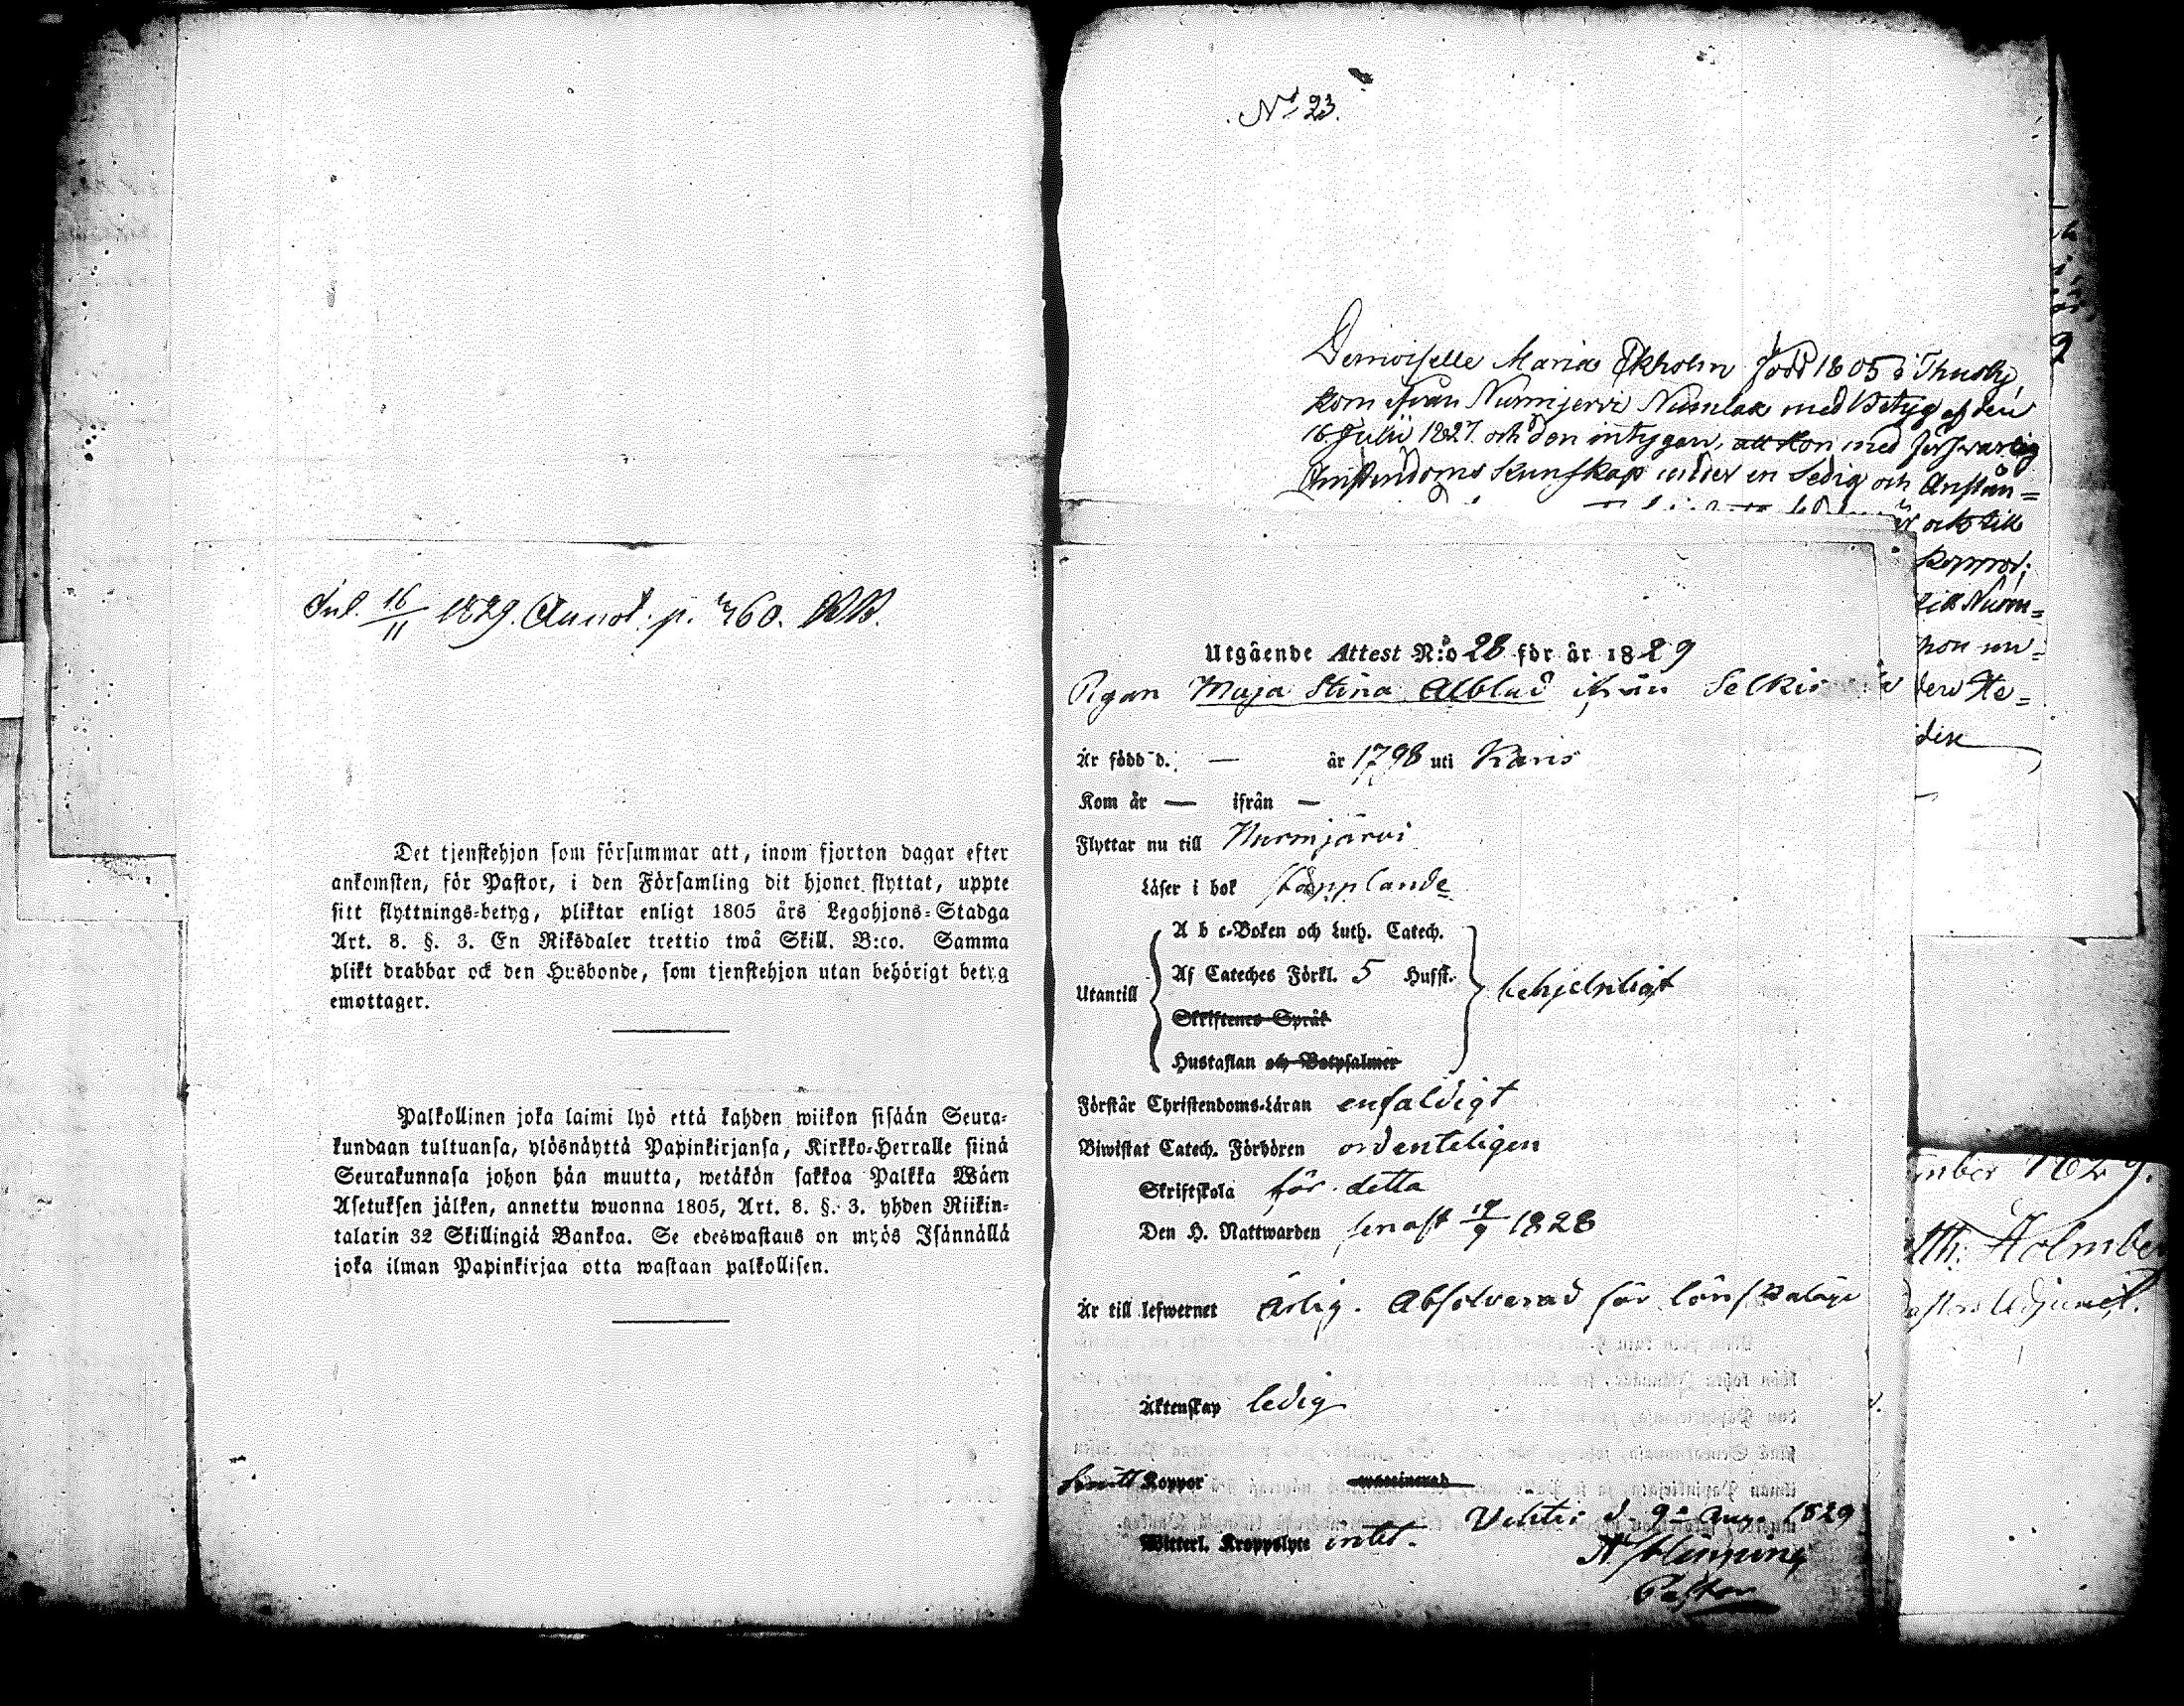 Inl. 16/11 1829. Annot. p. 360.
Det tjenstehjon som försummar att, inom fjorton dagar efter
ankomsten, för Pastor, i den Församling dit hjonet flyttat, uppte
sitt flyttnings-betyg, pliktar enligt 1805 års Legohjons-Stadga
Art. 8. §. 3. En Riksdaler trettio twå Skill. B:co. Samma
plikt drabbar ock den Husbonde, som tjenstehjon utan behörigt betyg
emottager.
Palkollinen joka laimi lyö että kahden wiikon sisään Seura-
kundaan tultuansa, ylösnäyttä Papinkirjansa, Kirkko-Herralle siinä
Seurakunnasa johon hän muutta, wetäkön sakkoa Palkka Wäen
Asetuksen jälken, annettu wuonna 1805, Art. 8. §. 3. yhden Riikin-
talarin 32 Skillingiä Bankoa. Se edeswastaus on myös Isännällä
joka ilman Papinkirjaa otta wastaan palkollisen.
No 23.
Demoiselle Maria Ekholm född 1805 i Thusby,
kom ifrån Nurmjervi Numlax med Betyg af den
16 Julii 1827. och den intygar, att hon med förswarlig
Christendoms Kunskap är en Ledig och Anstän=
och till
Koppor;
till Nurm=
hon un=
den He=
Utgående Attest N:o 28 för år 1829
Pigan Maja Stina Alblad ifrån
Är född d. — år 1798 uti Karis
Kom år — ifrån —
Flyttar nu till Nurmjärvi
Läser i bok stapplande
A b c-Boken och Luth. Catech.
Utantill Af Cateches Förkl. 5 Hufst. behjelpligt
Skriftenes Språk
Hustaflan och Botpsalmer
Förstår Christendoms-Läran enfaldigt
Biwistat Catech. Förhören ordenteligen
Skriftskola för detta
Den H. Nattwarden senast 19/9 1828
Är till lefwernet Ärlig. Absolverad för lönskaläge
Äktenskap ledig
haft Koppor vaccinerad
Wichtis d. 9 Aug. 1829
Witterl. Kroppslyte intet.
Pastor
mber 1829.
Holmbe
Pastors Adjunct.